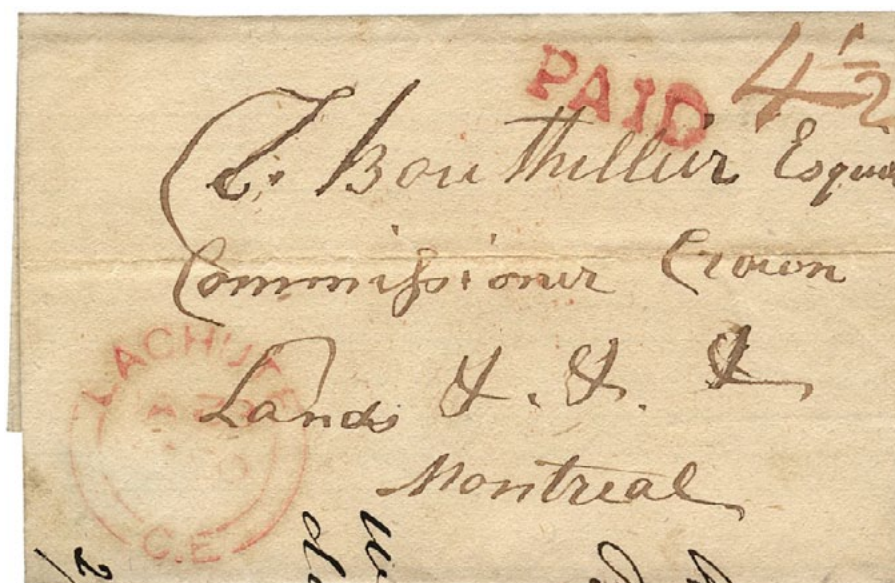 PAID 4½
T. Bouthillier Esquire
Commissioner Crown
Lands &. &. &
Montreal
LACHUTE
C.E